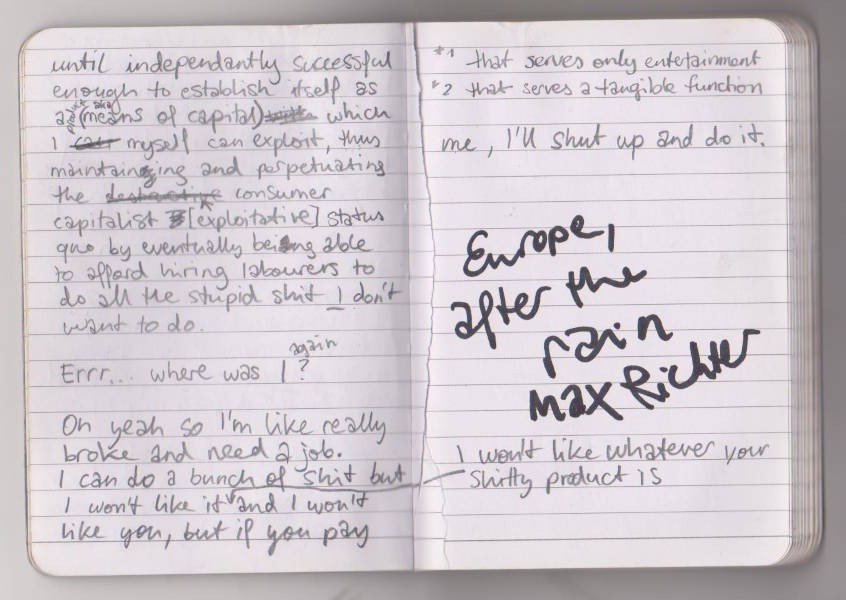 until independantly successful
enough to establish itself as
a product (aka means of capital) which
I myself can exploit, thus
maintaining and perpetuating
the consumer
capitalist [exploitative] status
quo by eventually being able
to afford hiring labourers to
do all the stupid shit I don't
want to do.
again
Errr... where was I ?
Oh yeah so I'm like really
broke and need a job.
I can do a bunch of shit but
I won't like it and I won't
like you, but if you pay
*1 that serves only entetainment
*2 that serves a tangible function
me, I'll shut up and do it.
Europe,
after the
rain
Max Richter
I won't like whatever your
shitty product is